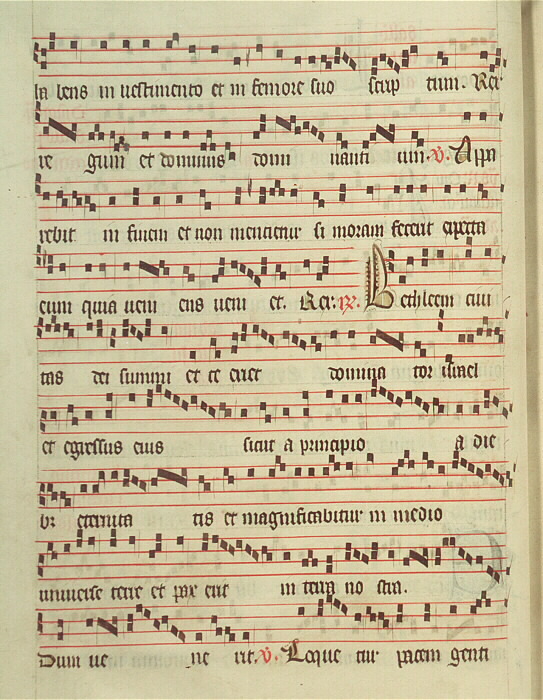 la bens in uestimento et in femore suo scrip tum. Rex
re gum et dominus domi nanti um. V. Appa
rebit in finem et non mencietur si moram fecerit expecta
eum quia ueni ens ueni et. Rex. R. Bethleem ciui
tas dei summi ex te exiet domina tor israel
et egressus eius sicut a principio a die
bus eternita tis et magnificabitur in medio
uniuerse terre et pax erit in terra no stra.
Dum ue ne rit. V. Loque tur pacem genti